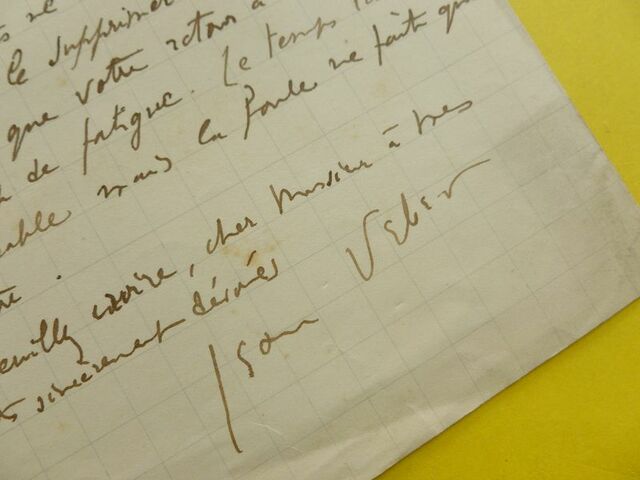 le supprimer
que votre retour à
de fatigue. Le temps
mais la foule ne fait que
veuillez croire, cher Monsieur à mes
sincèrement dévoués
Jean Veber